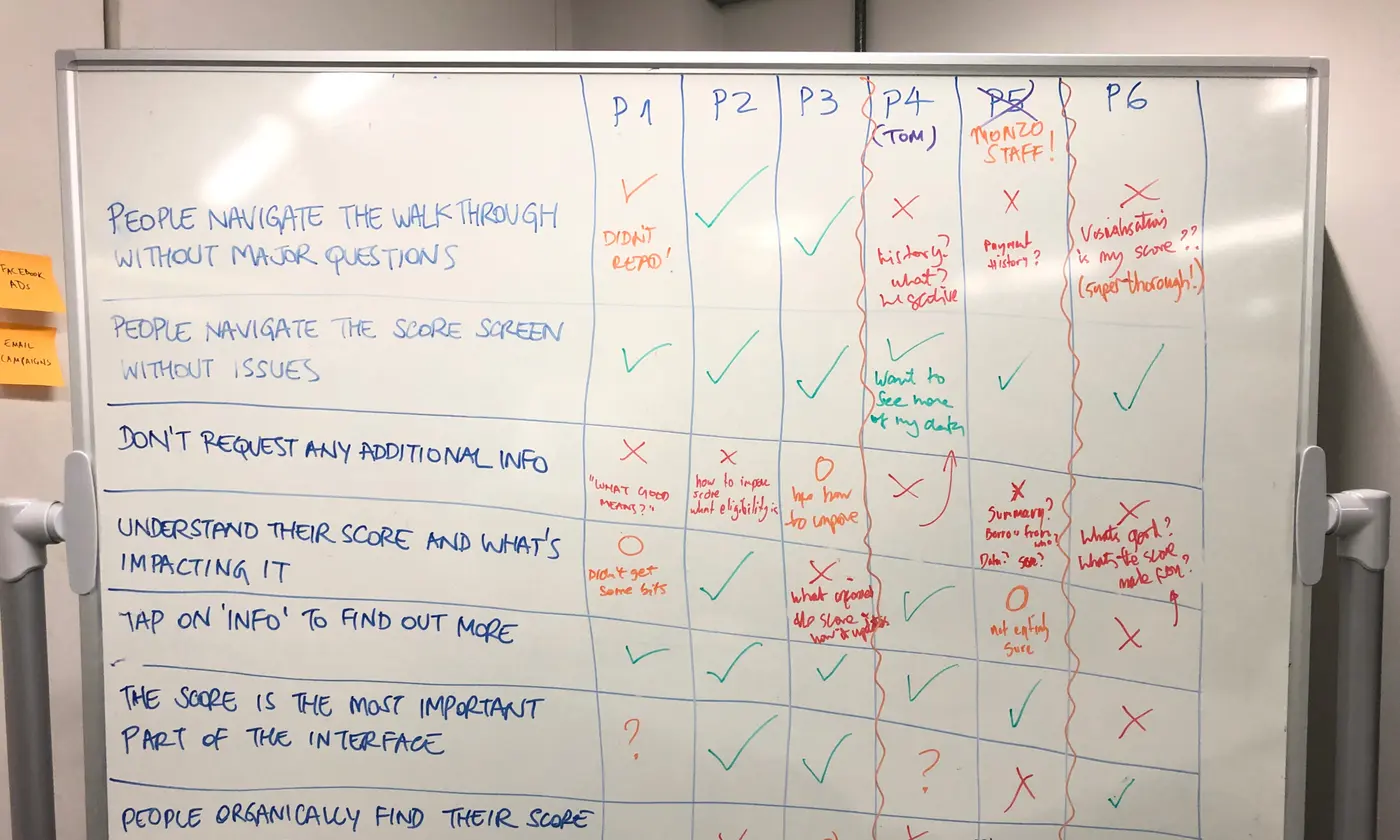 P1
P2
P3
P4
(TOM)
P5
MONZO
STAFF!
P6
FACEBOOK
ADS
EMAIL
CAMPAIGNS
PEOPLE NAVIGATE THE WALKTHROUGH
WITHOUT MAJOR QUESTIONS
DIDN'T
READ!
history?
what?
Payment
History?
Visualisation
is my score??
(super thorough!)
PEOPLE NAVIGATE THE SCORE SCREEN
WITHOUT ISSUES
Want to
See more
of my data
DON'T REQUEST ANY ADDITIONAL INFO
"WHAT GOOD
MEANS?"
how to improve
score
what eligibility is
how
to improve
Summary?
Borrow from
who?
Data?
What's good?
What's the score
made from?
UNDERSTAND THEIR SCORE AND WHAT'S
IMPACTING IT
Didn't get
some bits
what
the score
how it updates
not entirely
sure
TAP ON 'INFO' TO FIND OUT MORE
THE SCORE IS THE MOST IMPORTANT
PART OF THE INTERFACE
?
?
PEOPLE ORGANICALLY FIND THEIR SCORE